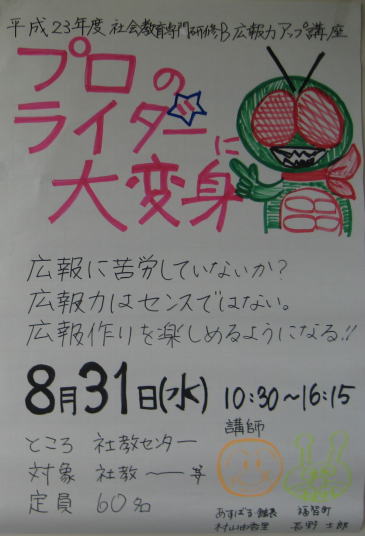 平成23年度 社会教育専門研修B 広報力アップ講座
プロの
ライダーに
大変身
広報に苦労していないか?
広報力はセンスではない。
広報作りを楽しめるようになる!!
8月31日(水) 10:30~16:15
講師
ところ 社教センター
対象 社教 等
定員 60名
あすばる・館長
村山由香里
福智町
長野 士郎